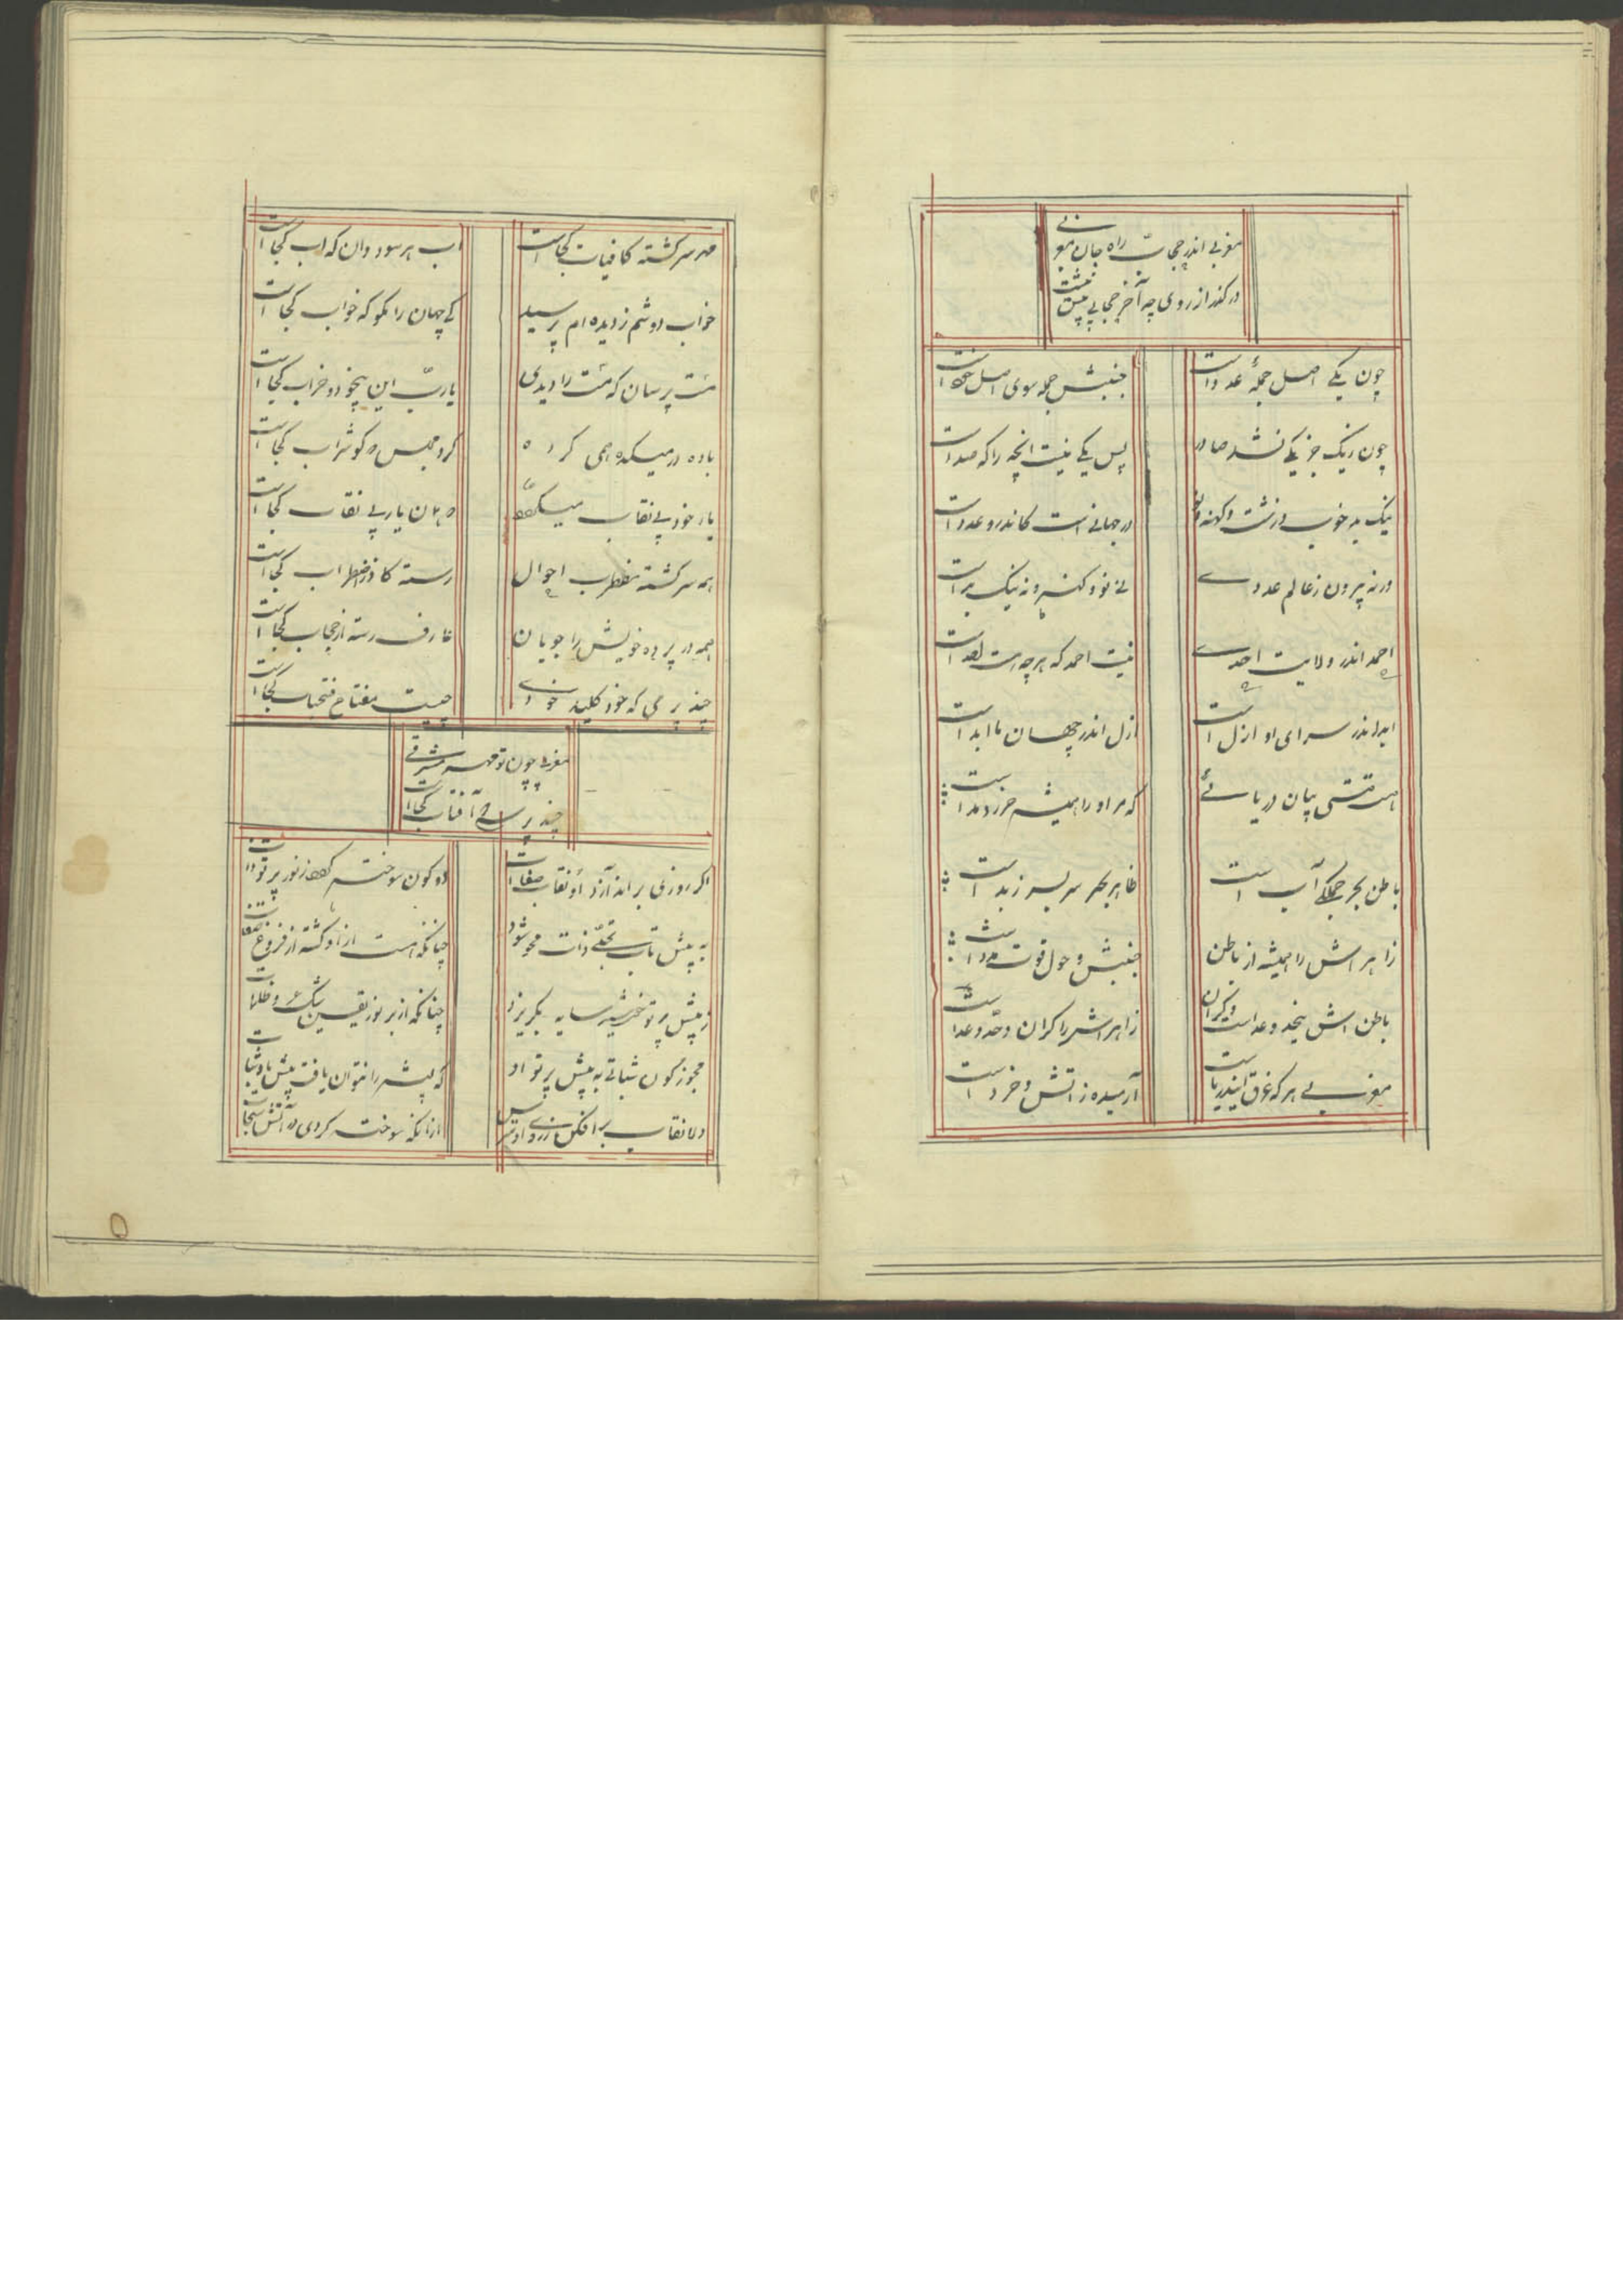 مغربی اندر حجابست راه جان مغربی
درگذر از روی چه آخر حجابی بیش نیست
چون یکی اصل جمله عدد است
جنبش جمله سوی اصل خود است
چون ز یک جز یکی نشد صادر
پس یکی نیست انچه را که صد است
نیک بد خوب و زشت و کهنه و نو
در جهانی است کاندرو عدد است
ورنه بیرون ز عالم عددی
نی نو و کهنه و نه نیک بد است
احمد اندر ولایت احدی
نیست احمد که هرچه هست احد است
ابد اندر سرای او ازل است
ازل اندر جهان ما ابد است
هست هستی بسان دریائی
که مر او را همیشه جزر و مد است
باطن بحر جملگی آب است
ظاهر بحر سربسر زبد است
زاهر اش را همیشه از باطن
جنبش و حول قوت مدد است
باطن اش بیحد و عد است و کران
زاهراش را کران و حد و عد است
مغربی هر که غرق این دریاست
آرمیده ز اتش و خرد است
مه سرگشته کافتاب کجاست
اب هر سو دوان که اب کجا است
خواب دوشم ز دیده ام پرسید
کی جهان را بگو که خواب کجا است
مست پرسان که مست را دیدی
یارب این بیخود و خراب کجا است
باده در میکده همی کرده
کرد مجلس که کو شراب کجا است
یار خود بی نقاب میکفت
که ان یار بی نقاب کجا است
همه سرگشته مضطرب احوال
رسته کاو ز اضطراب کجا است
همه در پرده خویش را جویان
عارف رسته از حجاب کجا است
چند پرسی که خود کلید خودی
چیست مفتاح فتحباب کجا است
مغربی چون تو مهر مشرقی
چند پرسی که آفتاب کجا است
اگر روزی براندازد او نقاب صفات
دو کون سوخته گردد ز نور پرتو ذات
به پیش تاب تجلی ذات محو شود
چنانکه هست ازاو گشته از فروغ صفات
ز پیش پرتو خورشید سایه بگریزد
چنانکه از بر نور یقین شک و ظلمات
مجوز کون ثباتی به پیش پرتو او
که پشه را نتوان یافت پیش باد ثبات
دلا نقاب برافکن ز روی او و مترس
ازانکه سوخته کردی در آتش سبحات